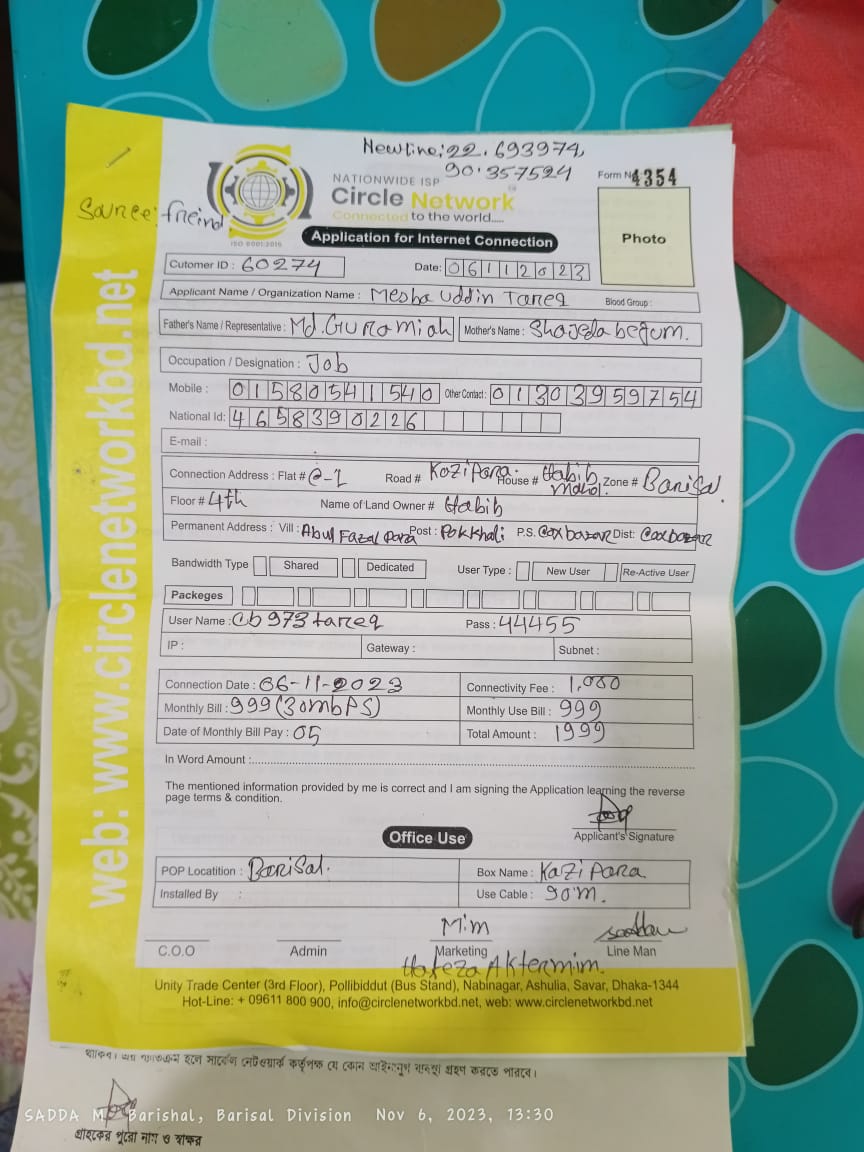 Newline: 22.693974,
90.357524
NATIONWIDE ISP
Circle Network
Connected to the world.....
ISO 9001:2015
Source: freind
Form No 4354
Photo
Application for Internet Connection
Cutomer ID : 60274 Date: 06112023
Applicant Name / Organization Name : Mesba Uddin Tareq Blood Group :
Father's Name / Representative : Md. Gura miah Mother's Name : Shajeda begum.
Occupation / Designation : Job
Mobile : 01580541540 Other Contact : 01303959754
National Id: 4658390226
E-mail :
Connection Address : Flat # C-1 Road # Kazi Para. House # Habib Mahal. Zone # Barisal.
Floor # 4th Name of Land Owner # Habib
Permanent Address : Vill : Abul Fazal Para Post : Pokkhali P.S. Cox bazar Dist: Cox bazar
Bandwidth Type Shared Dedicated User Type : New User Re-Active User
Packeges
User Name : Cb973tareq Pass : 44455
IP : Gateway : Subnet :
Connection Date : 06-11-2023 Connectivity Fee : 1,000
Monthly Bill : 999 (30mbps) Monthly Use Bill : 999
Date of Monthly Bill Pay : 05 Total Amount : 1999
In Word Amount :
The mentioned information provided by me is correct and I am signing the Application learning the reverse
page terms & condition.
Applicant's Signature
Office Use
POP Locatition : Barisal. Box Name : Kazi Para
Installed By : Use Cable : 90m.
Mim
C.O.O Admin Marketing Line Man
Hafeza Akter mim.
Unity Trade Center (3rd Floor), Pollibiddut (Bus Stand), Nabinagar, Ashulia, Savar, Dhaka-1344
Hot-Line: + 09611 800 900, info@circlenetworkbd.net, web: www.circlenetworkbd.net
web: www.circlenetworkbd.net
হলে সার্কেল নেটওয়ার্ক কর্তৃপক্ষ যে কোন আইনানুগ ব্যবস্থা গ্রহণ করতে পারবে।
SADDA M Barishal, Barisal Division Nov 6, 2023, 13:30
গ্রাহকের পুরো নাম ও স্বাক্ষর